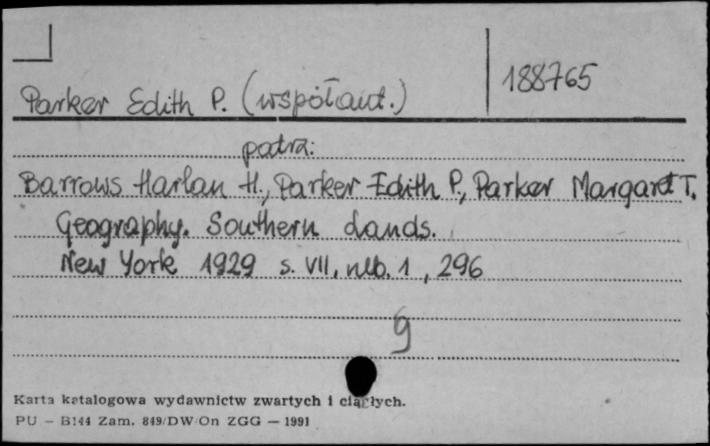 188765
Parker Edith P. (współaut.)
patrz:
Barrows Harlan H., Parker Edith P., Parker Margaret T.
Geography. Southern Lands.
New York 1929 s. VII, nlb. 1, 296
g
Karta katalogowa wydawnictw zwartych i ciągłych.
PU - B144 Zam. 849/DW/On ZGG - 1991